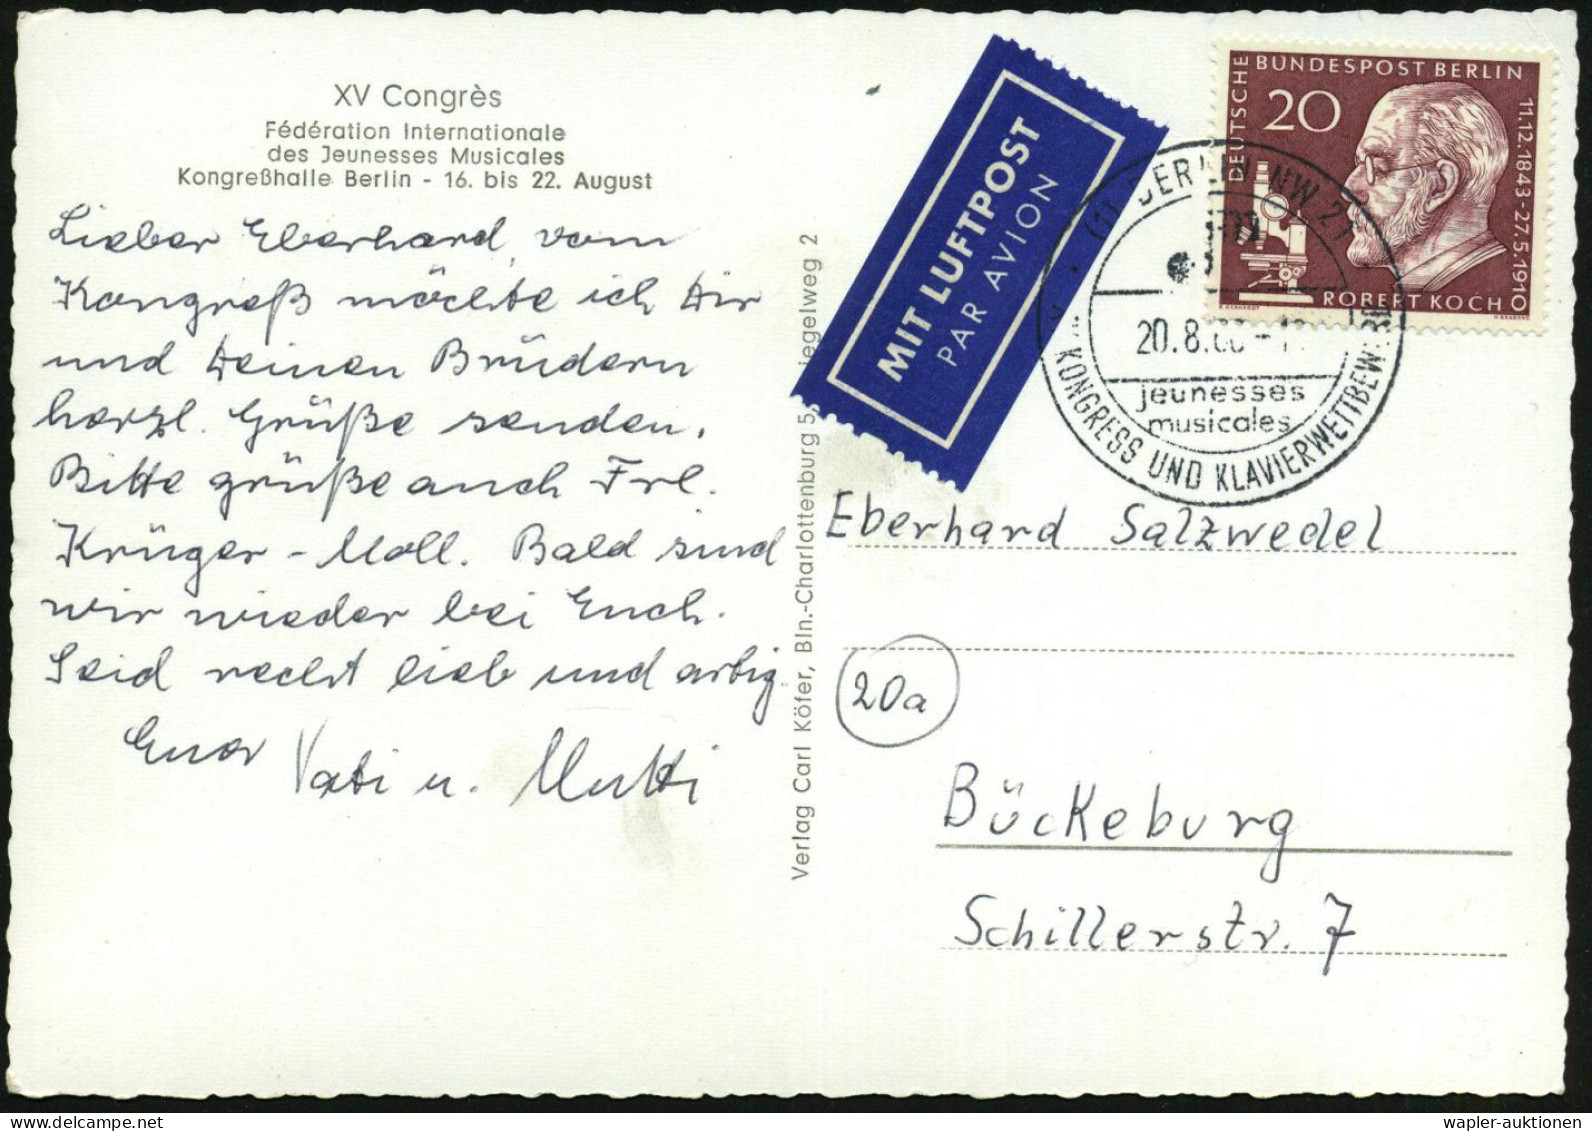 XV Congrès
Fédération Internationale
des Jeunesses Musicales
Kongreßhalle Berlin - 16. bis 22. August
Lieber Eberhard, vom
Kongreß möchte ich Dir
und Deinen Brüdern
herzl. Grüße senden.
Bitte grüße auch Frl.
Krüger - Moll. Bald sind
wir wieder bei Euch.
Seid recht lieb und artig
Euer Vati u. Mutti
Verlag Carl Köfer, Bln.-Charlottenburg 5, iegelweg 2
MIT LUFTPOST
PAR AVION
DEUTSCHE BUNDESPOST BERLIN
20
11.12.1843-27.5.1910
ROBERT KOCH
BERLIN NW 21
20.8.
jeunesses
musicales
KONGRESS UND KLAVIERWETTBEWERB
Eberhard Salzwedel
20a
Bückeburg
Schillerstr. 7
wapler-auktionen